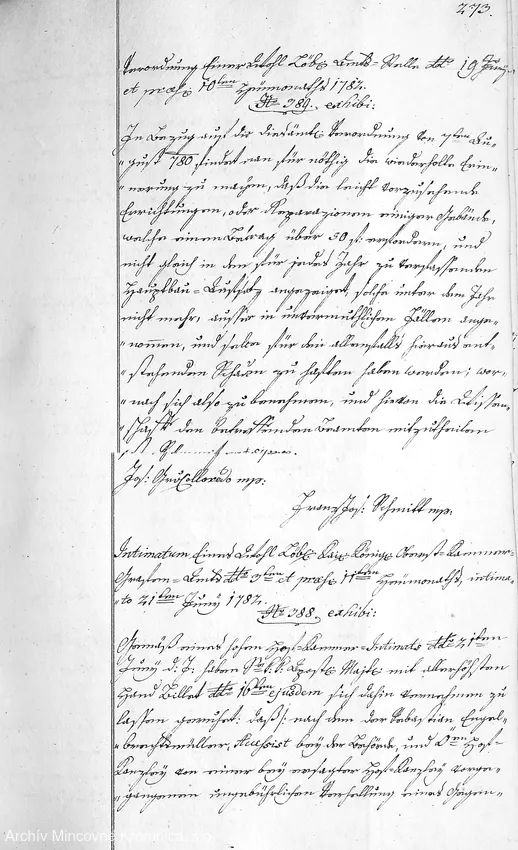 273.
Verordnung Einer Wohl Löbl. Amts-Stelle dto 19ten Juny
et praes. 10ten Heumonaths 1782.
No 389. exhibi:
In Bezug auf die diesämtl. Verordnung von 7ten Au-
gust 780 findet man für nöthig die wiederholte Erin-
nerung zu machen, daß die leicht vorzusehende
Errichtungen, oder Reparazionen einiger Gebäude,
welche einen Betrag über 50 f. erfordern, und
nicht gleich in den für jedes Jahr zu verfassenden
Hauptbau-Aufsatz angezeiget, solche unter dem Jahr
nicht mehr, ausser in unvermuthlichen Fällen ange-
nommen, und selbe für den allenfalls hieraus ent-
stehenden Schaden zu haften haben werden; wor-
nach sich also zu benehmen, und hievon die Wissen-
schaft den betreffenden Beamten mitzutheilen
Jos: Gr: Colloredo mp:
Franz Jos: Schmitt mp:
Intimatum Eines Wohl Löbl. Kais. Königl. Oberst-Kammer-
Grafen-Amts dto 3ten et praes. 11ten Heumonaths, intima-
to 21ten Juny 1782.
No 388. exhibi:
Gemäß eines hohen Hof-Kammer-Intimats dto 21ten
Juny d. J. haben Se k: k: Apost. Majst. mit allerhöchsten
Hand Billet dto 16ten ejusdem sich dahin vernehmen zu
lassen geruhet: daß: nach dem der Sebastian Engel-
brechtsmüller, Accessist bey der Behörde, und Hof-
Kanzley von einer bey ersagter Hof-Kanzley vorge-
gangenen ungebührlichen Vorstellung eines Gegen-
Archív Mincovne Kremnica